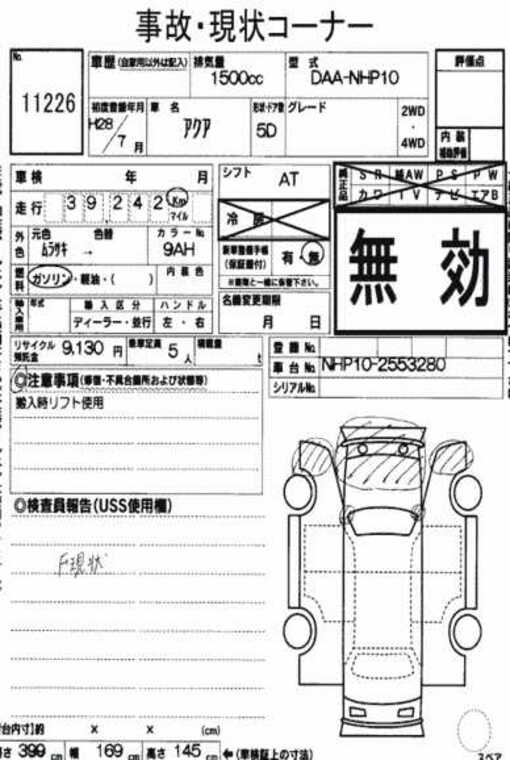 事故・現状コーナー
No. 11226
車歴 (自家用以外は記入)
排気量 1500cc
型式 DAA-NHP10
評価点
初度登録年月 H28/7月
車名 アクア
形状・ドア数 5D
グレード
2WD・4WD
内装補助評価
車検 年 月
シフト AT
純正品 SR 純AW PS PW
カワ TV ナビ エアB
走行 39,242 Km マイル
冷房
外色 元色 ムラサキ → 色替
カラーNo. 9AH
新車整備手帳(保証書付) 有・無
※書類と一緒に保管下さい。
無効
燃料 ガソリン・軽油・( )
内装色
名義変更期限 月 日
輸入車用 年式
輸入区分 ディーラー・並行
ハンドル 左・右
リサイクル預託金 9,130円
乗車定員 5人
積載量 t
登録No.
車台No. NHP10-2553280
シリアルNo.
◎注意事項(修復・不具合箇所および状態等)
搬入時リフト使用
◎検査員報告(USS使用欄)
F現状
台内寸]約 x x (cm)
長さ 399 cm 幅 169 cm 高さ 145 cm ←(車検証上の寸法)
スペア